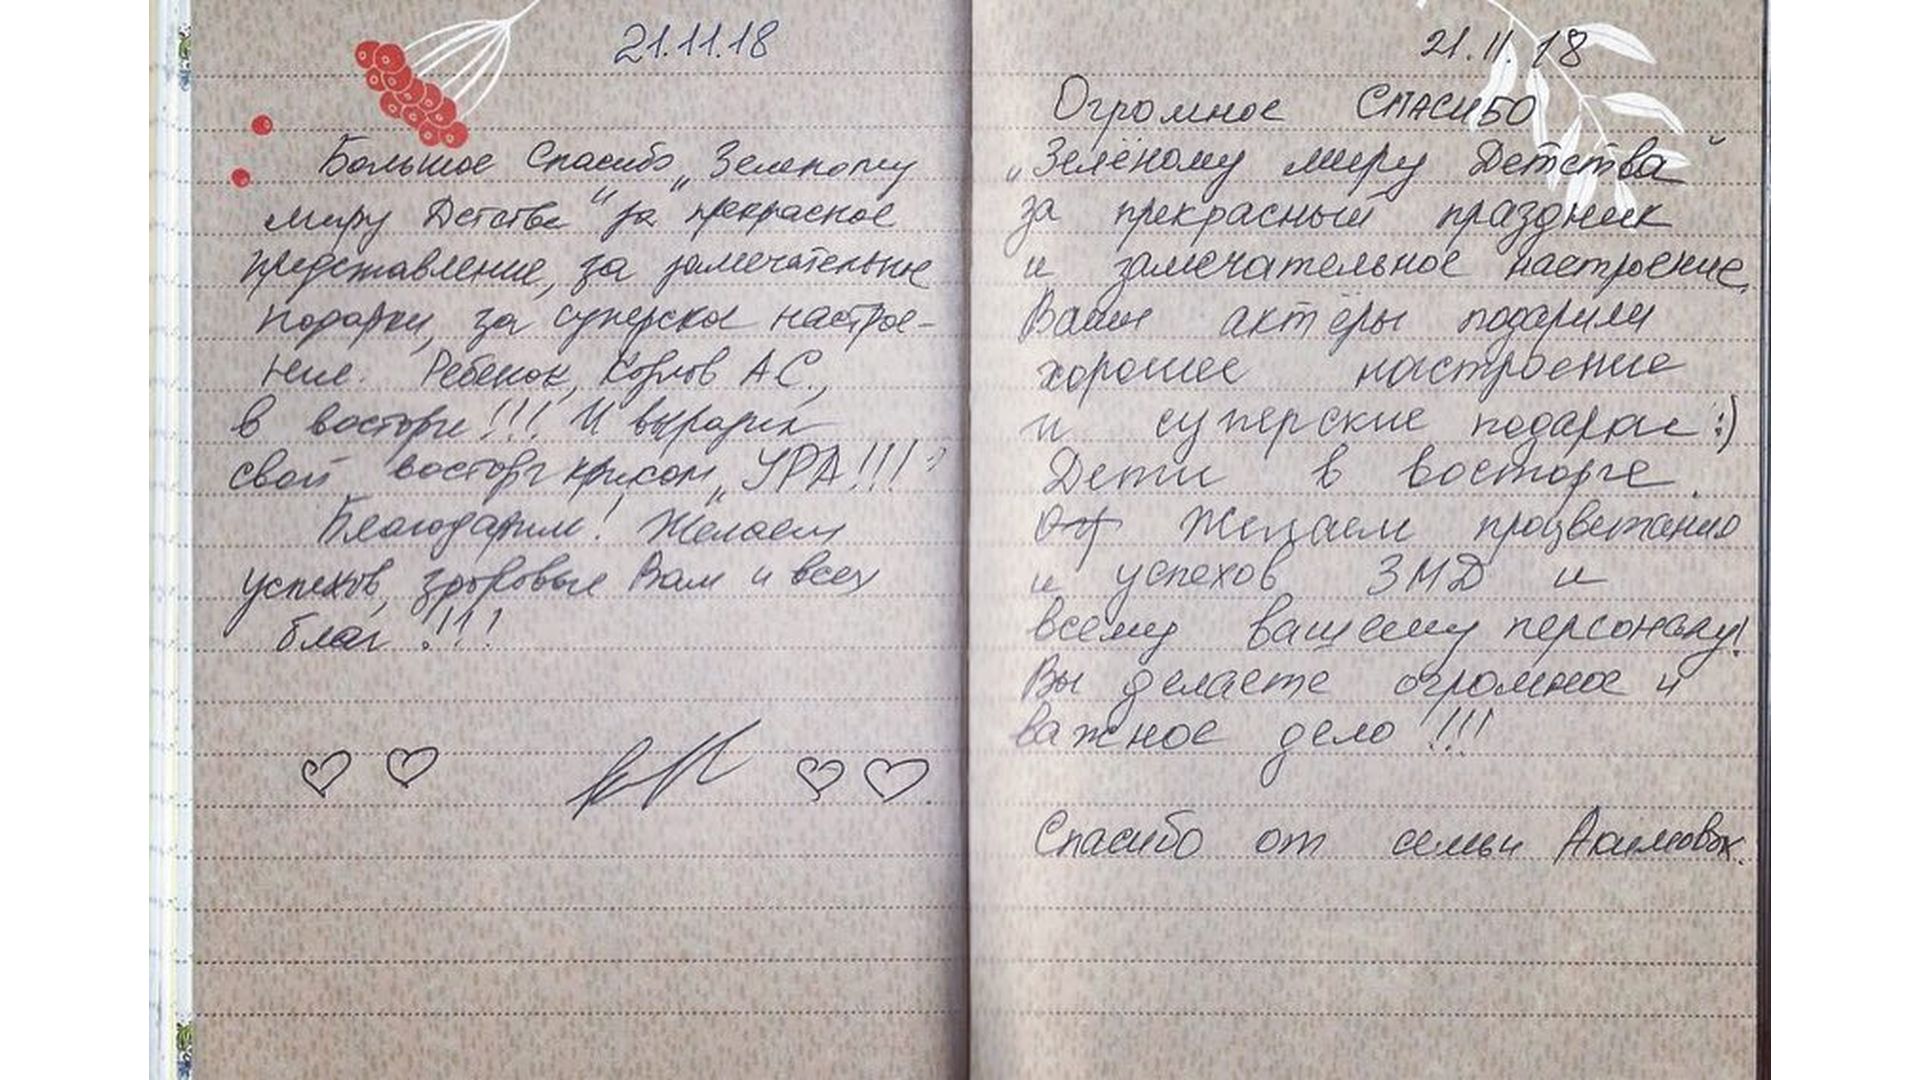 21.11.18
Большое Спасибо „Зеленому
миру Детства" за прекрасное
представление, за замечательные
подарки, за суперское настрое-
ние. Ребенок, Козлов А.С.,
в восторге!!! И выразил
свой восторг криком „УРА!!!"
Благодарим! Желаем
успехов, здоровье Вам и всех
благ!!!
21.11.18
Огромное СПАСИБО
„Зелёному миру Детства"
за прекрасный праздник
и замечательное настроение.
Ваши актёры подарили
хорошее настроение
и суперские подарки :)
Дети в восторге.
Желаем процветания
и успехов ЗМД и
всему вашему персоналу!
Вы делаете огромное и
важное дело!!!
Спасибо от семьи Акимовых.